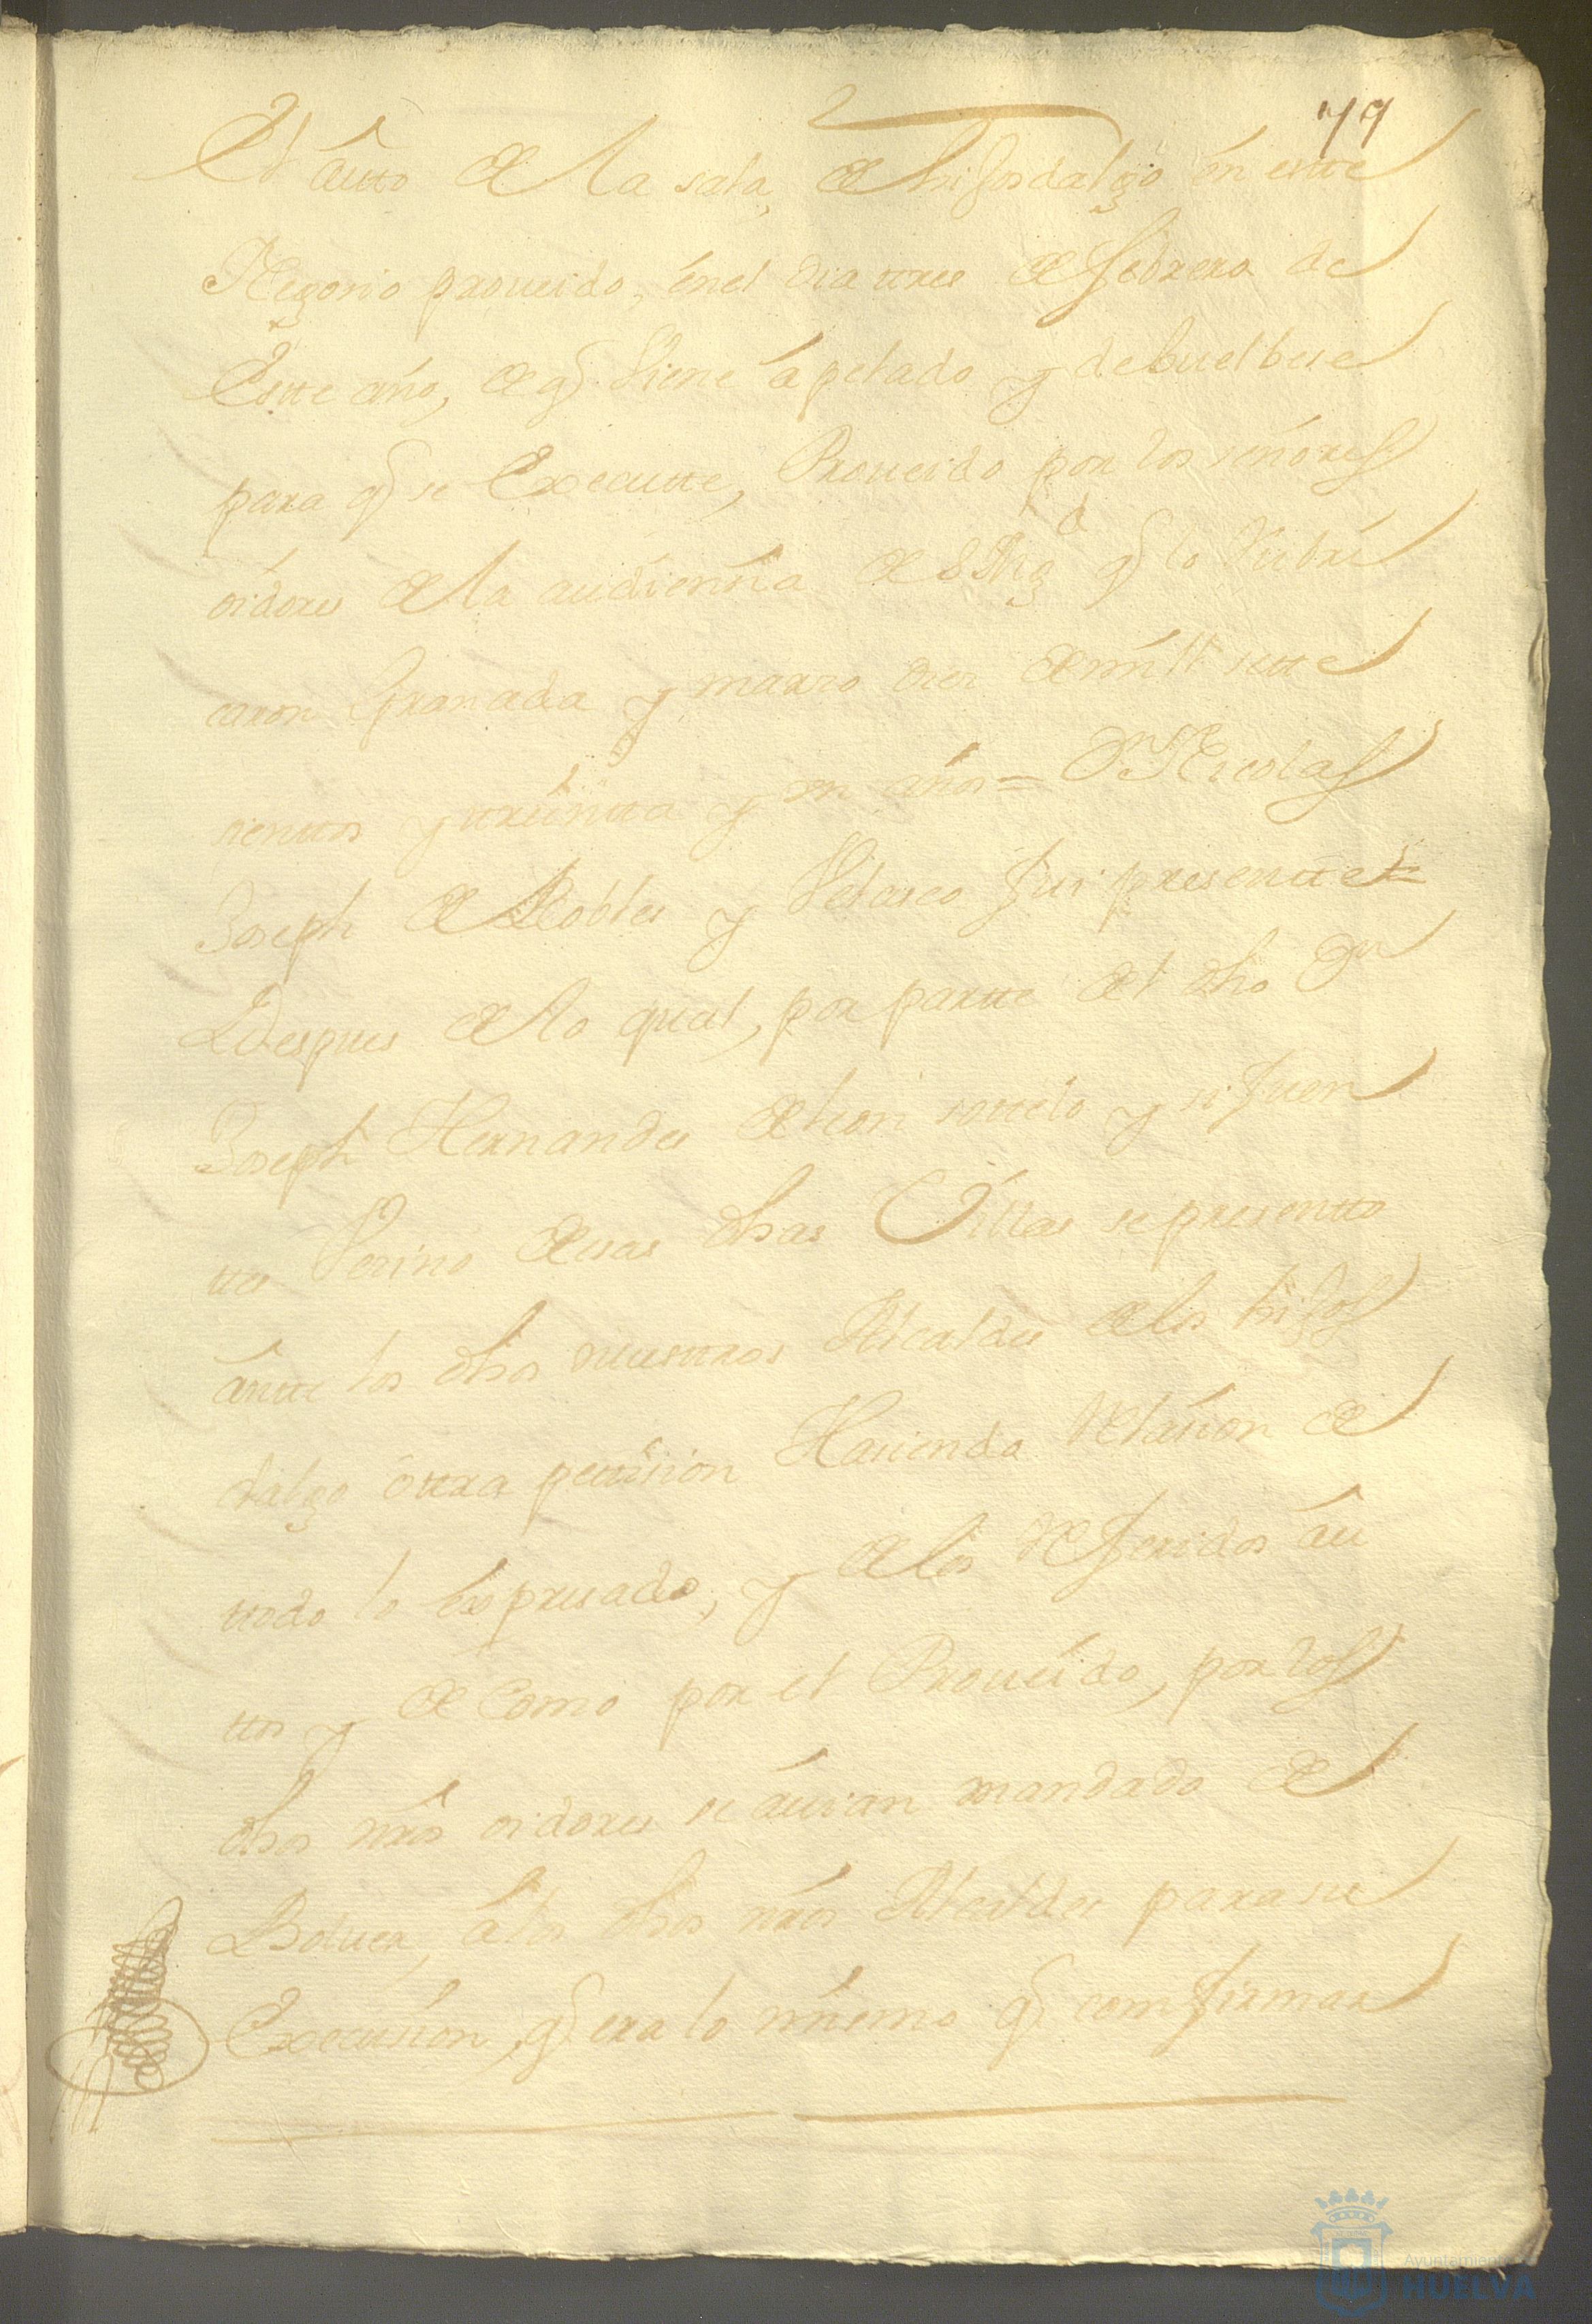 79
El auto de la sala, de hijosdalgo en estte
Negosio proueido, en el dia ttres de febrero de
Estte año, de q̃ Viene apelado y debuelbese
para q̃ se Executte, Proueido por los señores
oidores de la audiensia de S Mag.d q̃ lo Rubri
caron Granada y marzo diez de mill sette
sienttos y ttreintta y un años = Dn Nicolas
Joseph de Robles y Velasco fui presentte =
Y Despues de lo qual, por partte del dho Dn
Joseph Hernandes de leon sottelo y sifuen
ttes Vecino de esas dhas Villas se presentto
antte los dhos nuesttros Alcaldes de los hijos
dalgo ottra pettision Hasiendo Relasion de
ttodo lo expresado, y de los Referidos au
ttos y de como por el Proueido, por los
dhos nrõs oidores se auian mandado de
Boluer, a los dhos nrõs Alcaldes para su
Execusion, q̃ era lo mismo q̃ comfirmar
Ayuntamiento
HUELVA